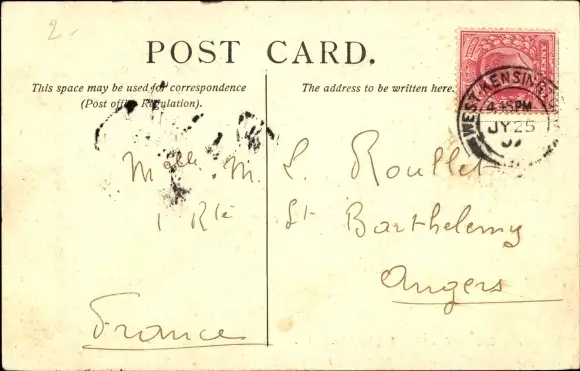 2.
POST CARD.
This space may be used for correspondence
(Post office Regulation).
The address to be written here.
WEST KENSING
4.15PM
JY 25
07
Mdlle M. L. Roullet
1 Rte St Barthelemy
Angers
France